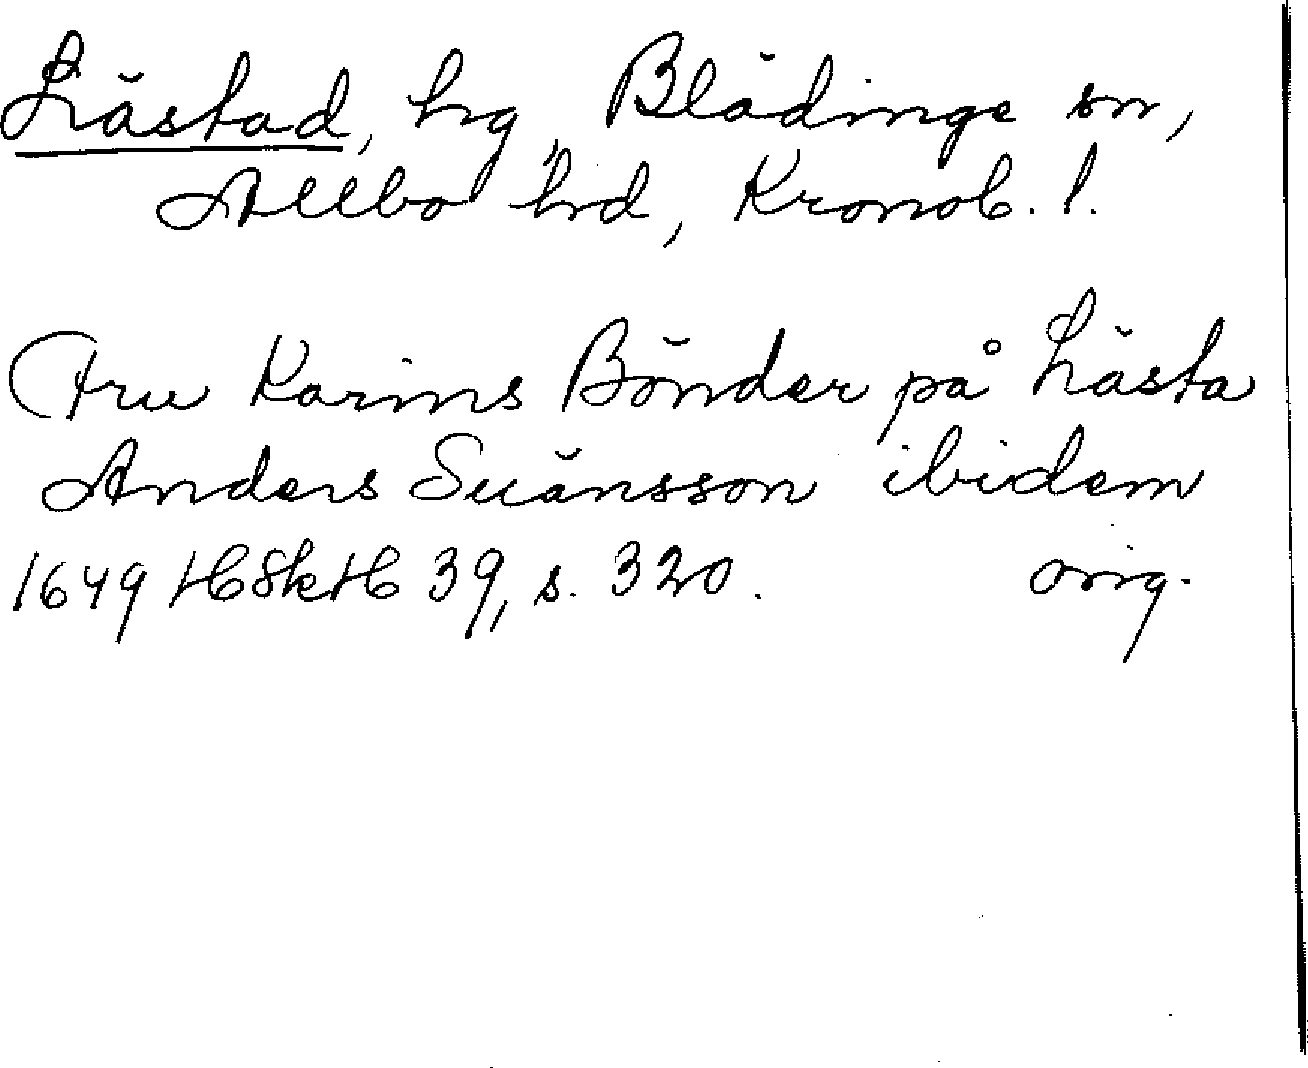 Låstad, hg, Blädinge sn,
Allbo hd, Kronob. l.
Fru Karins Bönder på Låsta
Anders Suänsson ibidem
1649 HSkH 39, s. 320. orig.